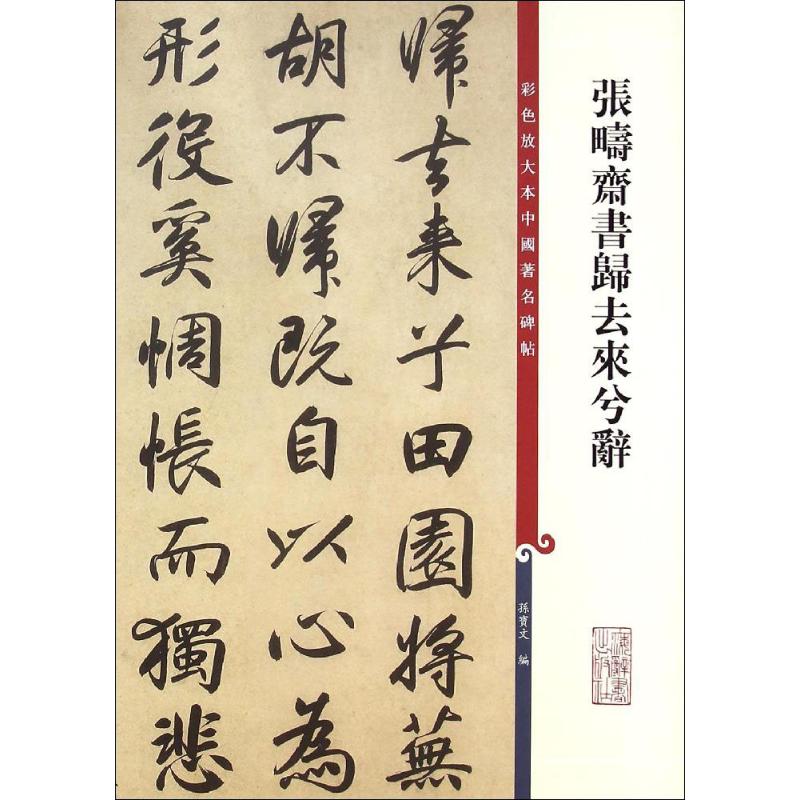 張疇齋書歸去來兮辭
彩色放大本中國著名碑帖
孫寶文 編
上海辭書
出版社
歸去来兮田園将蕪
胡不歸既自以心為
形役奚惆悵而獨悲